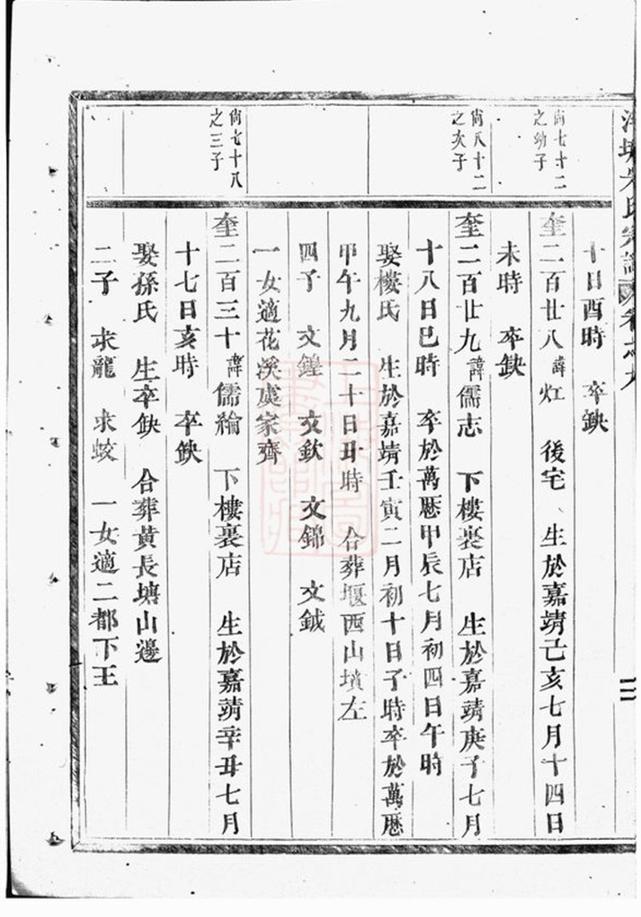 氏宗譜 卷之九
十日酉時 卒缺
尙七十二
之幼子
奎二百廿八 諱灴 後宅 生於嘉靖己亥七月十四日
未時 卒缺
尙八十二
之次子
奎二百廿九 諱儒志 下樓裏店 生於嘉靖庚子七月
十八日巳時 卒於萬厯甲辰七月初四日午時
娶樓氏 生於嘉靖壬寅二月初十日子時卒於萬厯
甲午九月二十日丑時 合葬堰西山墳左
四子 文鍠 文欽 文錦 文鉞
一女適花溪虞家齊
尙七十八
之三子
奎二百三十 諱儒綸 下樓裏店 生於嘉靖辛丑七月
十七日亥時 卒缺
娶孫氏 生卒缺 合葬黃長塘山邊
二子 求龍 求蛟 一女適二都下王